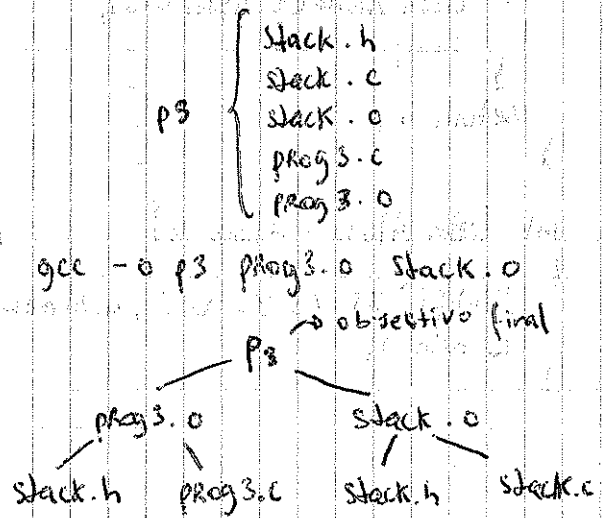 stack.h
stack.c
p3 stack.o
prog3.c
prog3.o
gcc -o p3 prog3.o stack.o
p3 → objectivo final
prog3.o stack.o
stack.h prog3.c stack.h stack.c